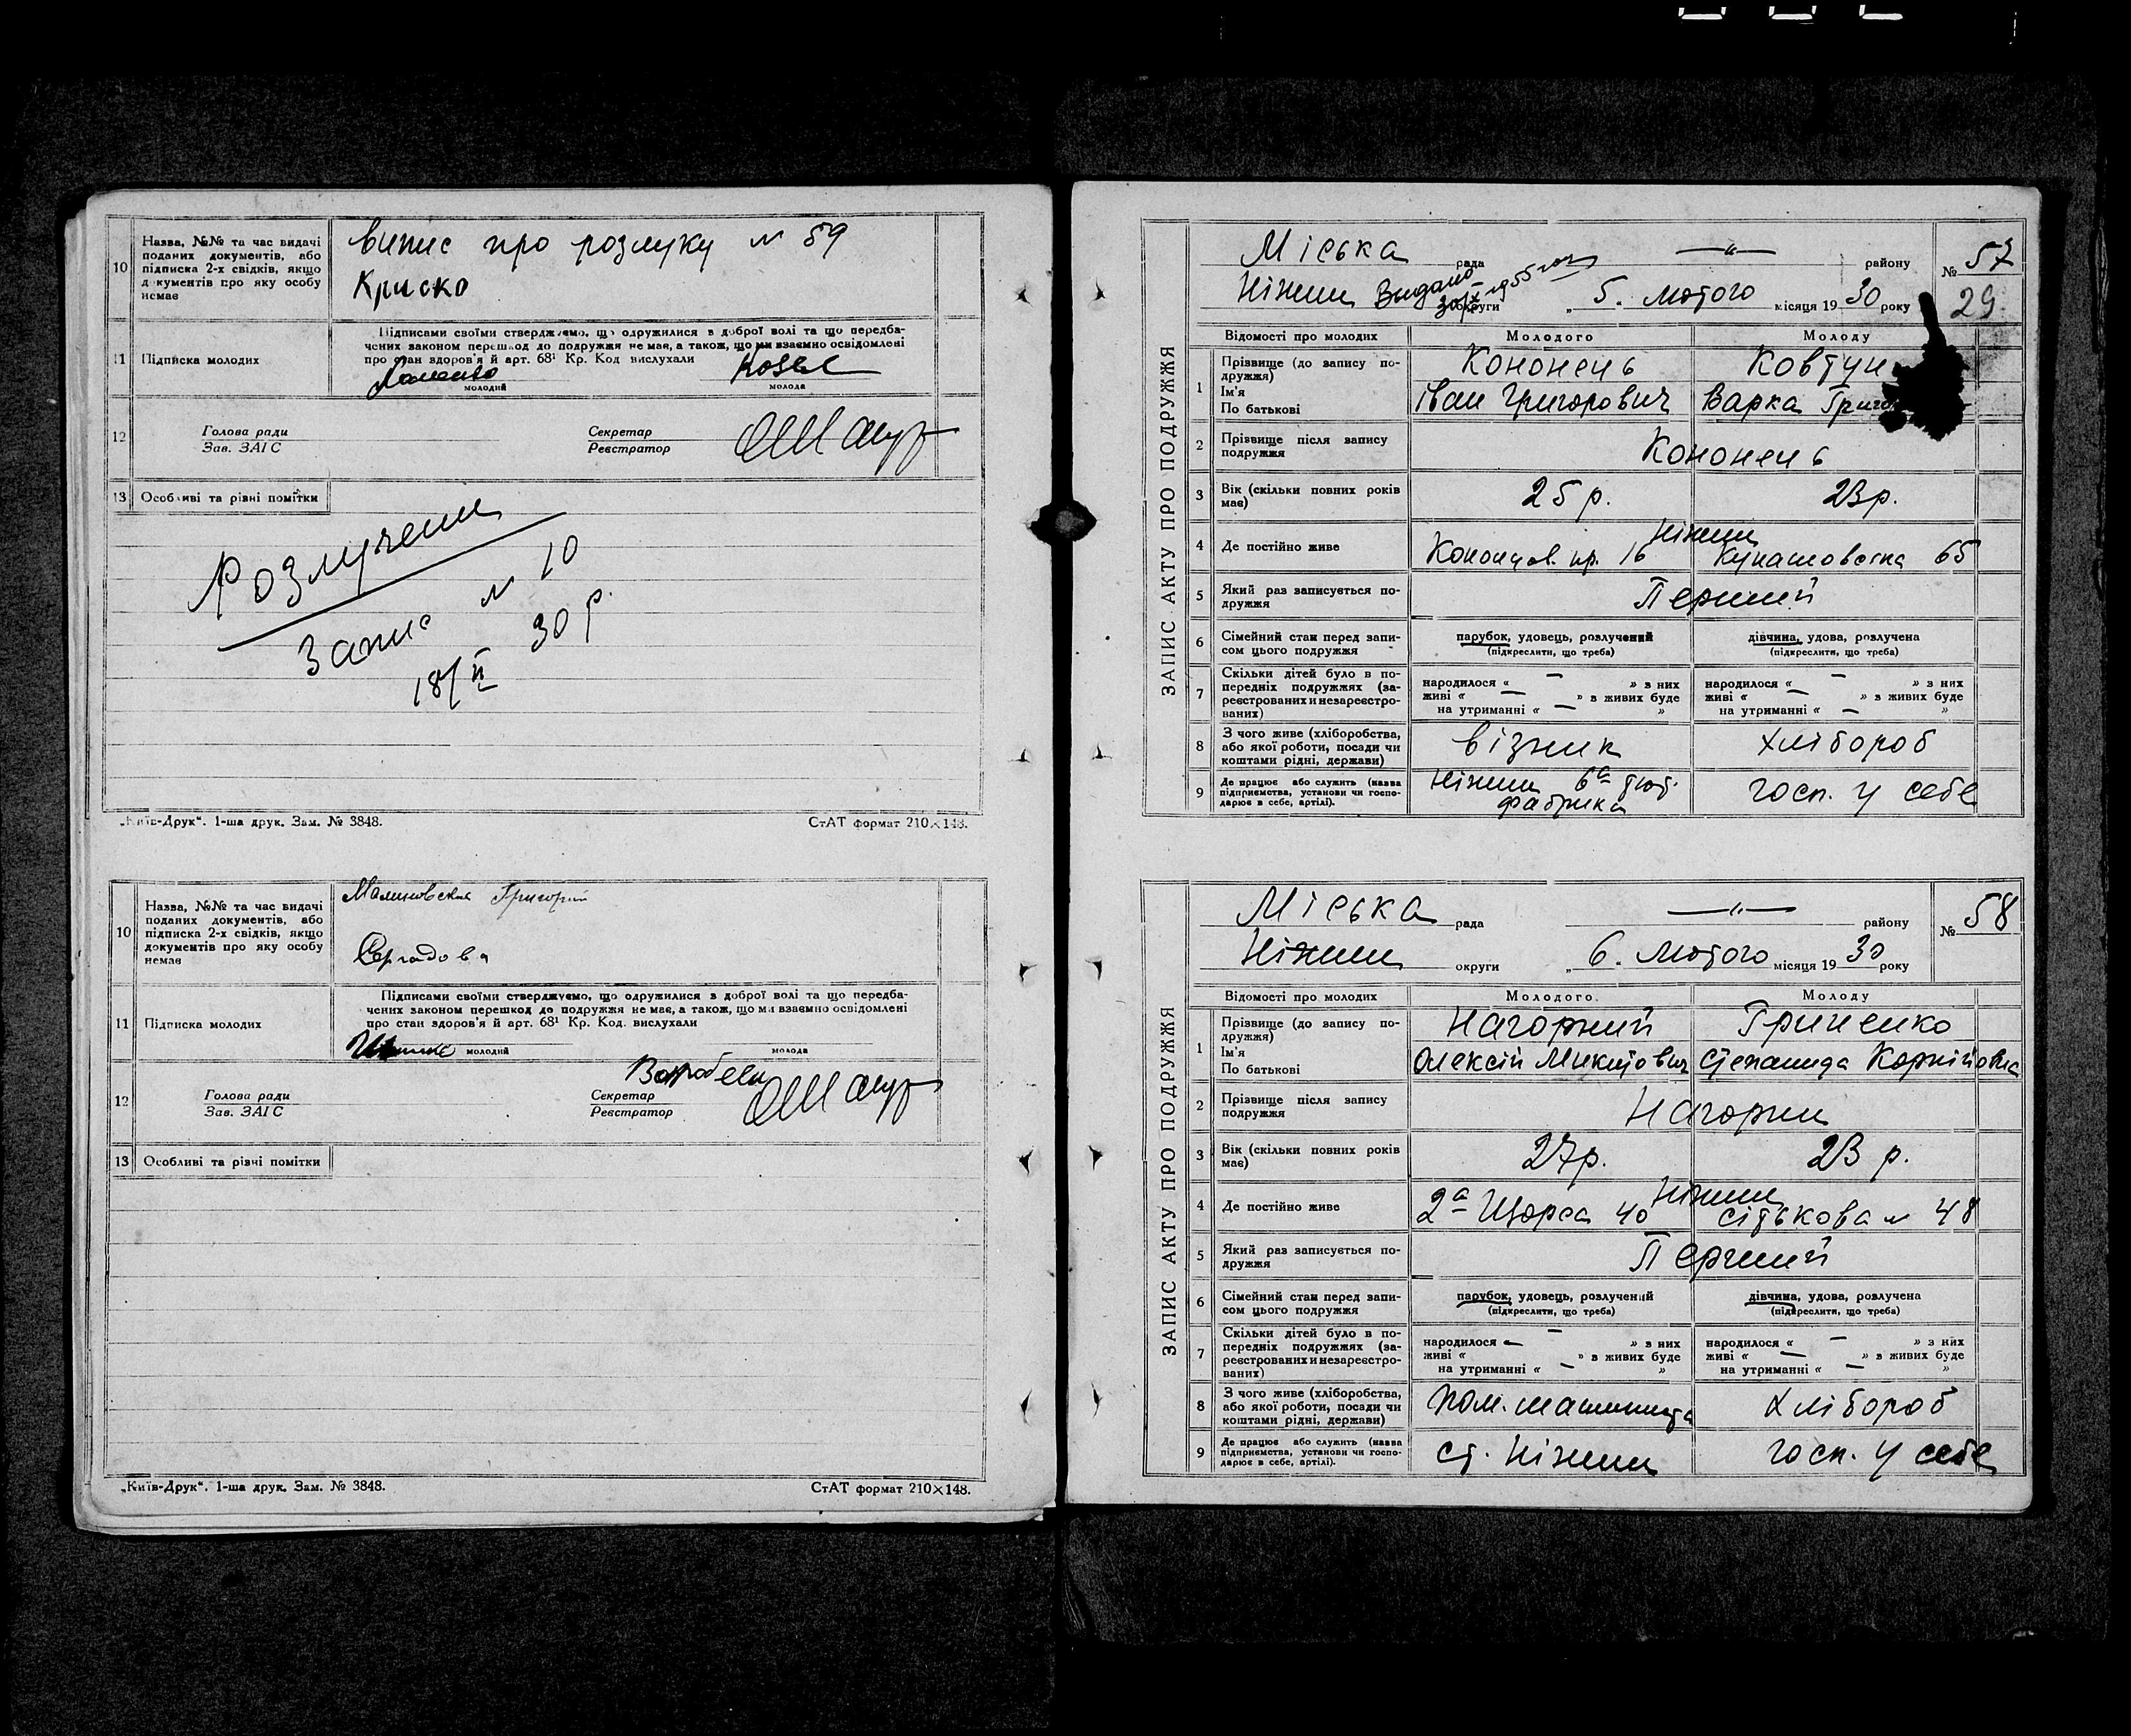 10
Назва, №№ та час видачі
поданих документів, або
підписка 2-х свідків, якщо
документів про яку особу
немає
випис про розлуку № 59
Криско
11
Підписка молодих
Підписами своїми стверджуємо, що одружилися в доброї волі та що передба-
чених законом перешкод до подружжя не має, а також, що ми взаємно освідомлені
про стан здоров'я й арт. 68¹ Кр. Код вислухали
молодий
молода
12
Голова ради
Зав. ЗАГС
Секретар
Реєстратор
13
Особливі та різні помітки
Розлучени
Запис № 10
18/II 30 р.
„Київ-Друк“. 1-ша друк. Зам. № 3848.
СтАТ формат 210×148.
10
Назва, №№ та час видачі
поданих документів, або
підписка 2-х свідків, якщо
документів про яку особу
немає
Малиновский Григорий
11
Підписка молодих
Підписами своїми стверджуємо, що одружилися з доброї волі та що передба-
чених законом перешкод до подружжя не має, а також, що ми взаємно освідомлені
про стан здоров'я й арт. 68¹ Кр. Код. вислухали
молодий
молода
12
Голова ради
Зав. ЗАГС
Секретар
Реєстратор
13
Особливі та різні помітки
„Київ-Друк“. 1-ша друк. Зам. № 3848.
СтАТ формат 210×148.
ЗАПИС АКТУ ПРО ПОДРУЖЖЯ
Міська рада —„— району
№ 57
Ніжин округи Видано 30/IX 1955 года
„ 5. Лютого місяця 1930 року
29.
Відомості про молодих
Молодого
Молоду
1
Прізвище (до запису по-
дружжя)
Ім'я
По батькові
Кононець
Іван Григорович
Ковтун
Варка
2
Прізвище після запису
подружжя
Кононець
3
Вік (скільки повних років
має)
25 р.
23 р.
4
Де постійно живе
Ніжин
16
Кунашовська 65
5
Який раз записується по-
дружжя
Перший
6
Сімейний стан перед запи-
сом цього подружжя
парубок, удовець, розлучений
(підкреслити, що треба)
дівчина, удова, розлучена
(підкреслити, що треба)
7
Скільки дітей було в по-
передніх подружжях (за-
реєстрованих и незареєстро-
ваних)
народилося « — » з них
живі « — » в живих буде
на утриманні « — »
народилося « — » з них
живі « — » в живих буде
на утриманні « — »
8
З чого живе (хліборобства,
або якої роботи, посади чи
коштами рідні, держави)
візник
хлібороб
9
Де працює або служить (назва
підприємства, установи чи госпо-
дарює в себе, артілі).
Ніжин 6а тют.
фабрика
госп. у себе
ЗАПИС АКТУ ПРО ПОДРУЖЖЯ
Міська рада —„— району
№ 58
Ніжин округи „ 6. Лютого місяця 1930 року
Відомості про молодих
Молодого
Молоду
1
Прізвище (до запису по-
дружжя)
Ім'я
По батькові
Нагорний
Олексій Микитович
Гриненко
Степанида Корнійовна
2
Прізвище після запису
подружжя
Нагорни
3
Вік (скільки повних років
має)
27р.
23 р.
4
Де постійно живе
Ніжин
2а Щорса 40
Сітькова № 48
5
Який раз записується по-
дружжя
Перший
6
Сімейний стан перед запи-
сом цього подружжя
парубок, удовець, розлучений
(підкреслити, що треба)
дівчина, удова, розлучена
(підкреслити, що треба)
7
Скільки дітей було в по-
передніх подружжях (за-
реєстрованих и незареєстро-
ваних)
народилося « — » з них
живі « — » в живих буде
на утриманні « — »
народилося « — » з них
живі « — » в живих буде
на утриманні « — »
8
З чого живе (хліборобства,
або якої роботи, посади чи
коштами рідні, держави)
пом. машиніста
хлібороб
9
Де працює або служить (назва
підприємства, установи чи госпо-
дарює в себе, артілі).
ст. Ніжин
госп. у себе